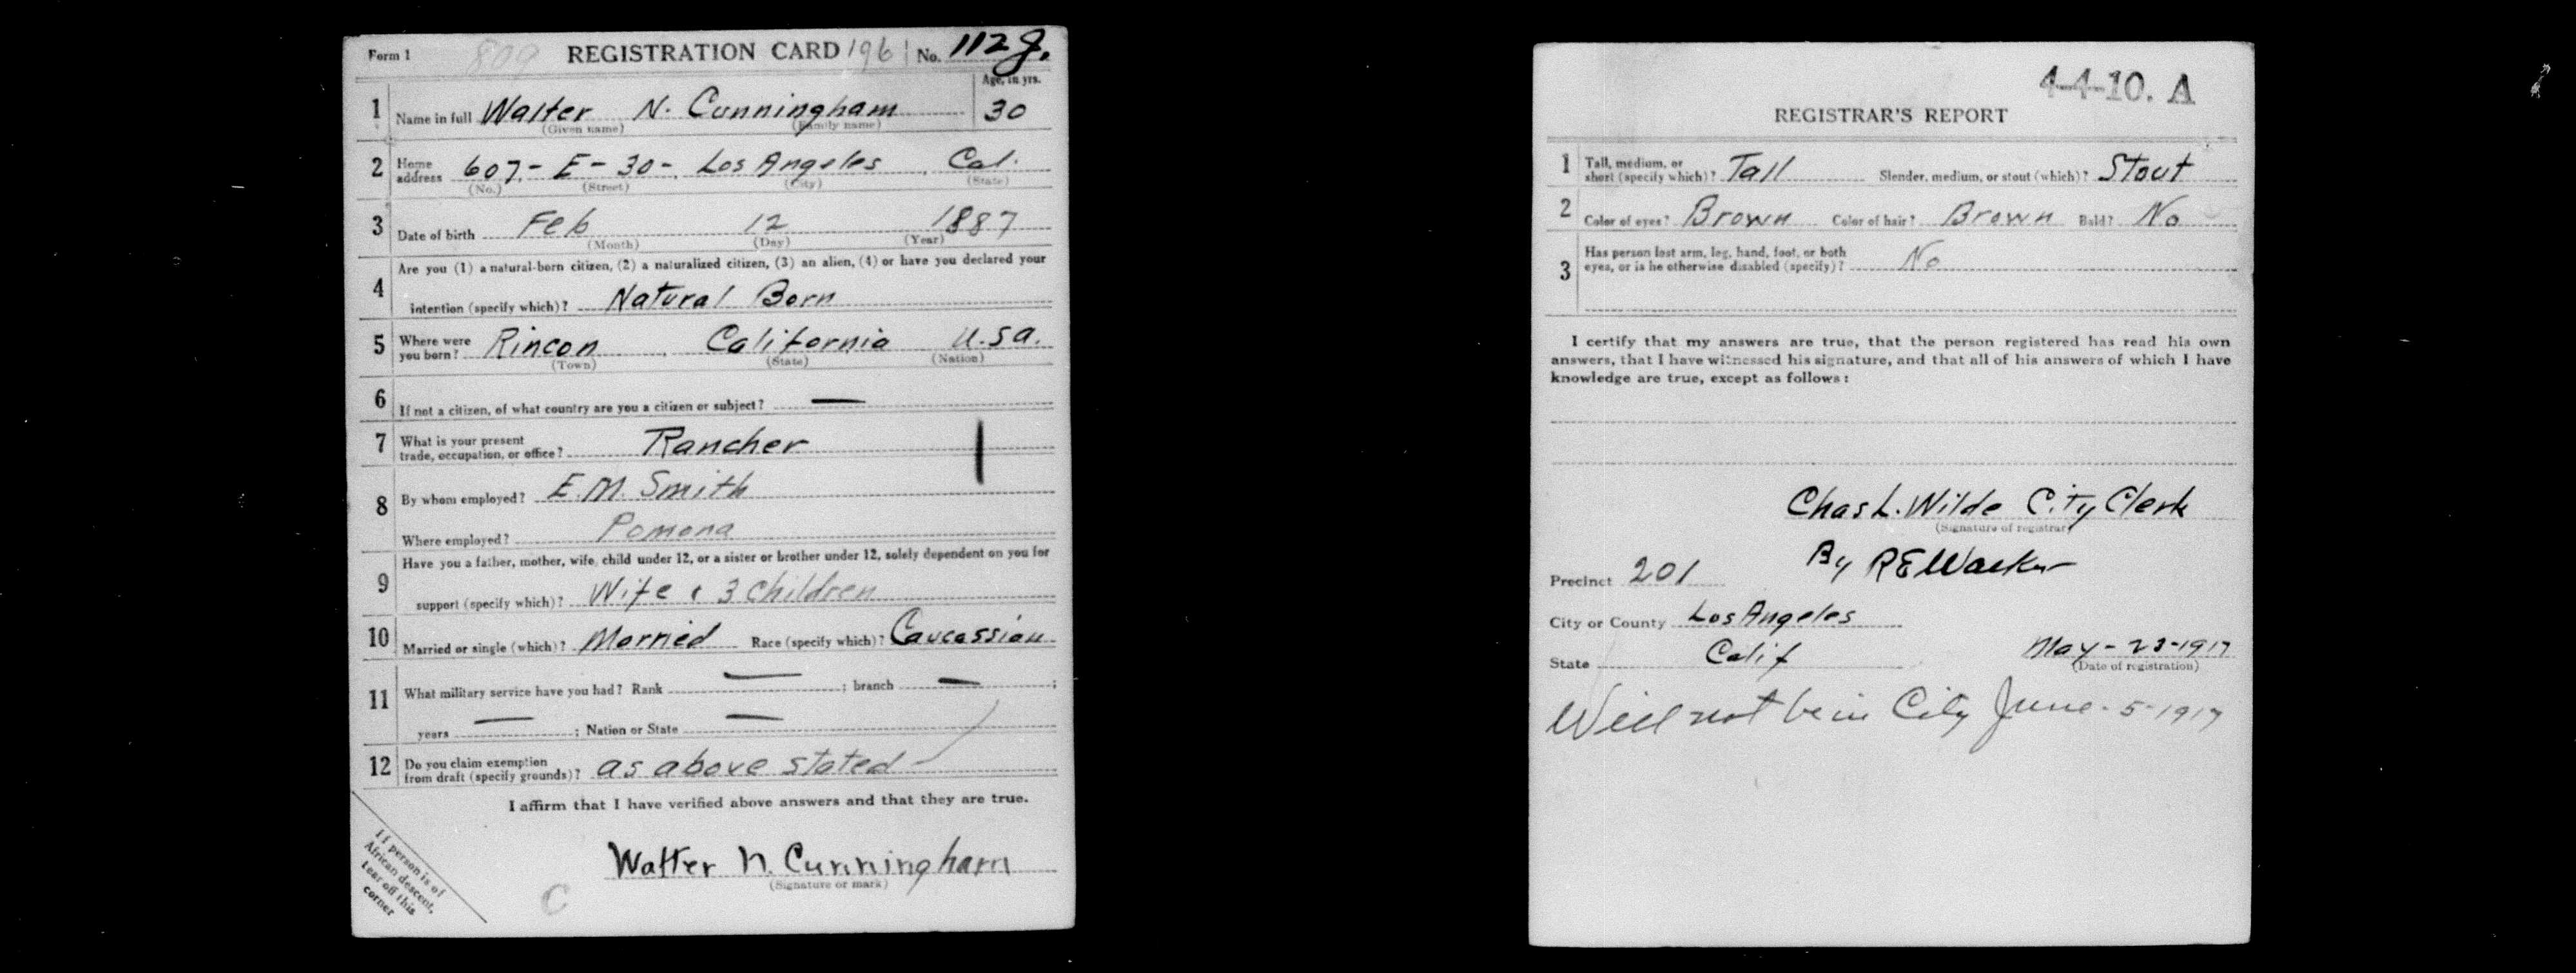 Form 1 809 REGISTRATION CARD 196 No. 112
Age, in yrs.
1 Name in full Walter N. Cunningham 30
(Given name) (Family name)
2 Home address 607 - E - 30 - Los Angeles, Cal.
(No.) (Street) (City) (State)
3 Date of birth Feb 12 1887
(Month) (Day) (Year)
4 Are you (1) a natural-born citizen, (2) a naturalized citizen, (3) an alien, (4) or have you declared your
intention (specify which)? Natural Born
5 Where were you born? Rincon, California U.S.A.
(Town) (State) (Nation)
6 If not a citizen, of what country are you a citizen or subject? —
7 What is your present trade, occupation, or office? Rancher
8 By whom employed? E.M. Smith
Where employed? Pomona
9 Have you a father, mother, wife, child under 12, or a sister or brother under 12, solely dependent on you for
support (specify which)? Wife & 3 Children
10 Married or single (which)? Married Race (specify which)? Caucassian
11 What military service have you had? Rank — ; branch — ;
years — ; Nation or State —
12 Do you claim exemption from draft (specify grounds)? as above stated
I affirm that I have verified above answers and that they are true.
Walter N. Cunningham
(Signature or mark)
If person is of
African descent,
tear off this
corner
C
4-4-10. A
REGISTRAR'S REPORT
1 Tall, medium, or short (specify which)? Tall Slender, medium, or stout (which)? Stout
2 Color of eyes? Brown Color of hair? Brown Bald? No
3 Has person lost arm, leg, hand, foot, or both
eyes, or is he otherwise disabled (specify)? No
I certify that my answers are true, that the person registered has read his own
answers, that I have witnessed his signature, and that all of his answers of which I have
knowledge are true, except as follows:
Chas L. Wilde City Clerk
(Signature of registrar)
By R E
Precinct 201
City or County Los Angeles
State Calif May - 23 - 1917
(Date of registration)
Will not be in City June - 5 - 1917